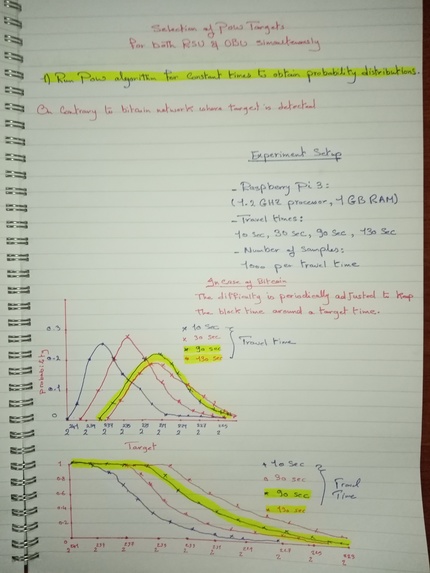 Selection of PoW Targets
For both RSU & OBU simultaneously
1) Run PoW algorithm for constant times to obtain probability distributions.
On Contrary to bitcoin network where target is detected
Experiment Setup
- Raspberry Pi 3:
(1.2 GHZ processor, 1 GB RAM)
- Travel times:
10 sec, 30 sec, 90 sec, 130 sec
- Number of samples:
1000 per travel time
In case of Bitcoin
The difficulty is periodically adjusted to keep
the block time around a target time.
0.3
0.2
0.1
0
probability
10 sec
30 sec
90 sec
130 sec
Travel time
Target
1
0.8
0.6
0.4
0.2
0
10 sec
30 sec
90 sec
130 sec
Travel
Time